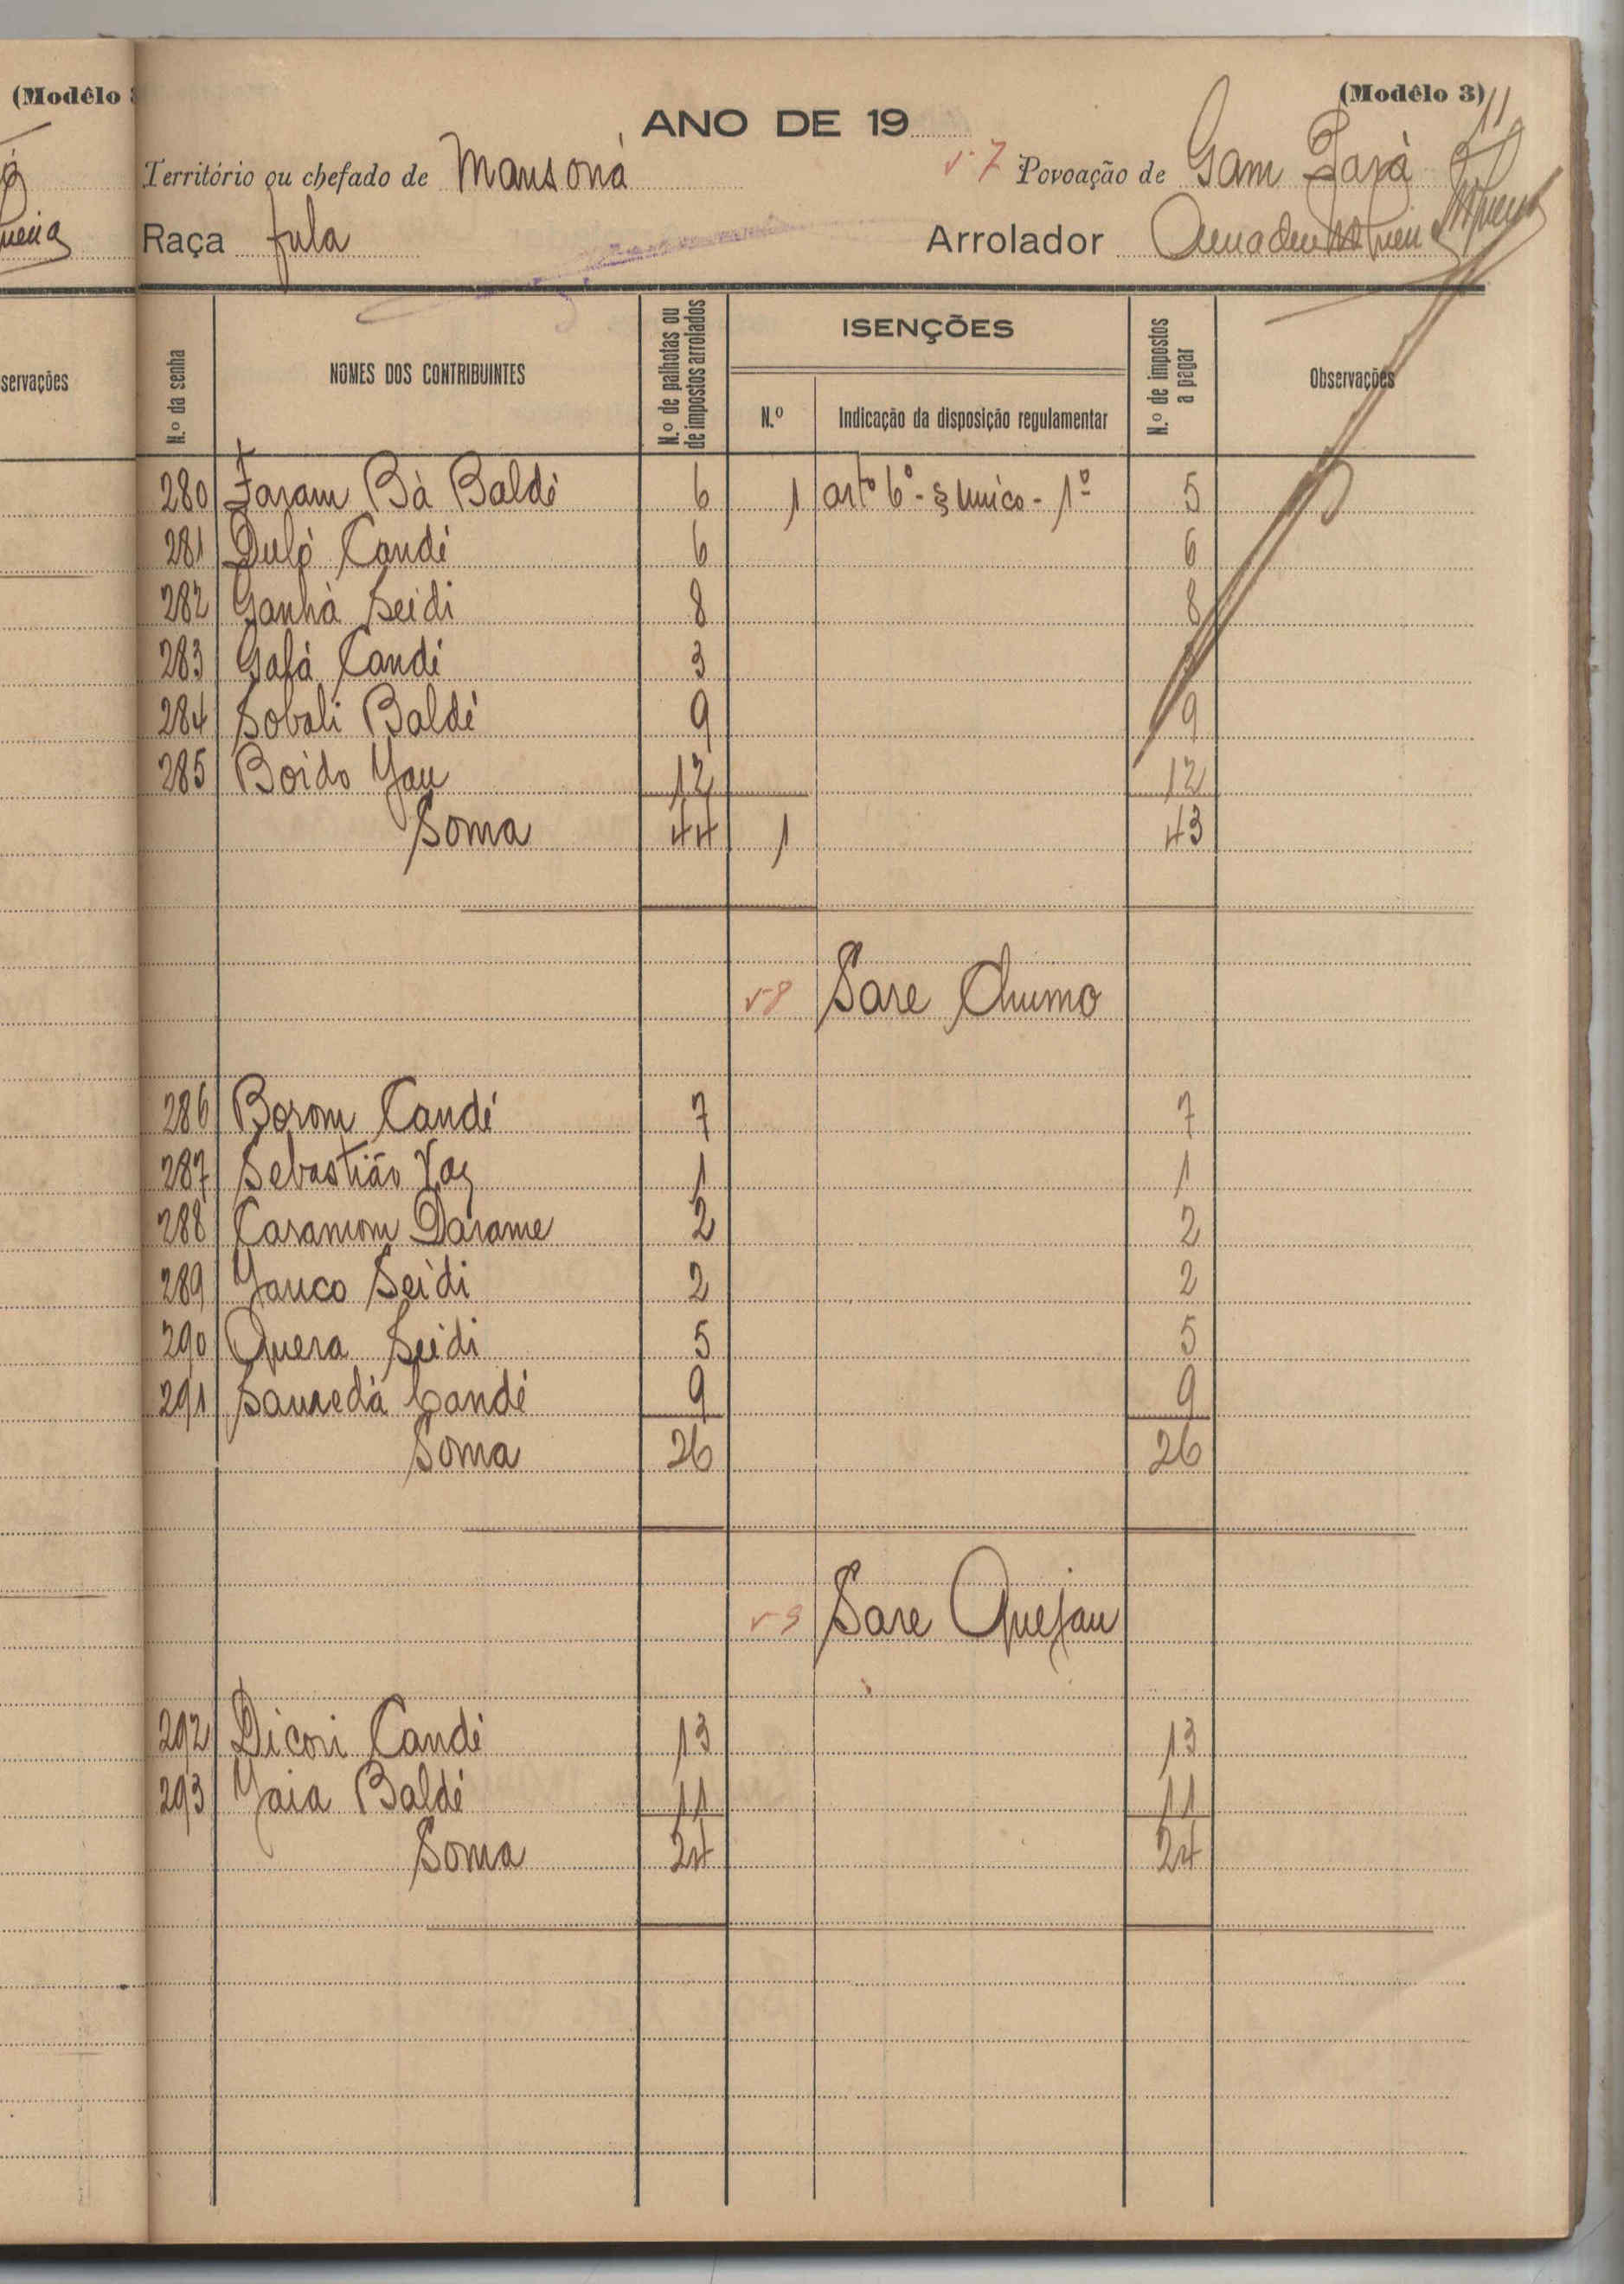 (Modêlo
(Modêlo 3)
ANO DE 19
Território ou chefado de Mansoná
v. 7 Povoação de Gam
Raça fula
Arrolador
servações
N.º da senha
NOMES DOS CONTRIBUINTES
N.º de palhotas ou de impostos arrolados
ISENÇÕES
N.º
Indicação da disposição regulamentar
N.º de impostos a pagar
Observações
280 Faram Bà Baldé 6 1 artº 6º - § unico - 1º 5
281 Duló Candé 6 6
282 Ganhà Seidi 8 8
283 Galà Candé 3
284 Sobali Baldé 9 9
285 Boido Yau 12 12
Soma 44 1 43
v 8 Sare Chumo
286 Borom Candé 7 7
287 Sebastião Vaz 1 1
288 Caramom Darame 2 2
289 Yauco Seidi 2 2
290 Quera Seidi 5 5
291 Sauredà Candé 9 9
Soma 26 26
v 9 Sare Quejau
292 Dicori Candé 13 13
293 Yaia Baldé 11 11
Soma 24 24